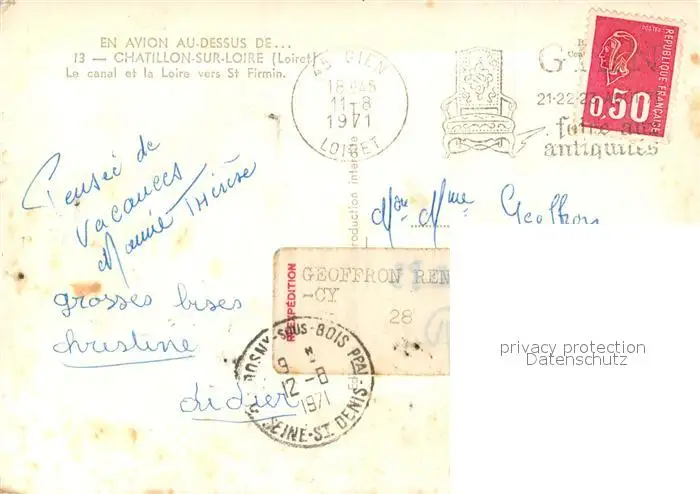 EN AVION AU-DESSUS DE...
13 — CHATILLON-SUR-LOIRE (Loiret)
Le canal et la Loire vers St Firmin.
45 GIEN
18H45
11-8
1971
LOIRET
GIEN
21-22-23
foire aux
antiquités
POSTES
REPUBLIQUE FRANÇAISE
0,50
Pensée de
vacances
Marie Thérèse
grosses bises
christine
didier
Mon. Mme Geoffron
RÉEXPÉDITION
GEOFFRON REN
-CY
28
ROSNY-SOUS-BOIS PPAL
9H
12-8
1971
SEINE-ST-DENIS
privacy protection
Datenschutz